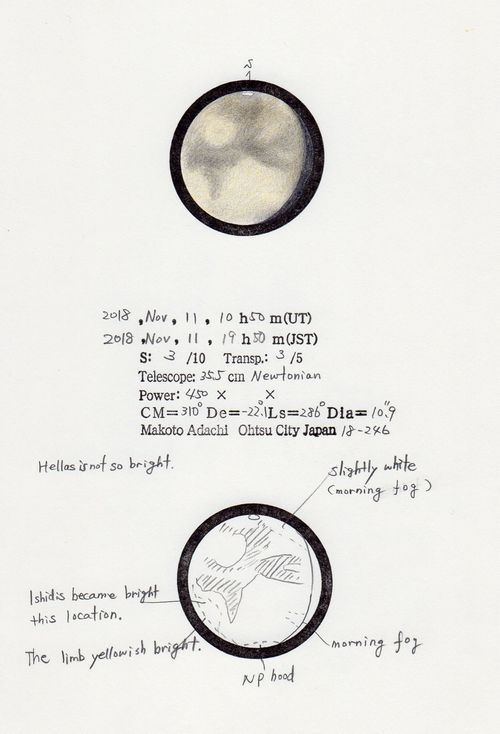 S
2018 , Nov, 11 , 10 h 50 m(UT)
2018 , Nov, 11 , 19 h 50 m(JST)
S: 3 /10 Transp.: 3 /5
Telescope: 35.5 cm Newtonian
Power: 450 × ×
CM=310° De=-22.1° Ls=286° Dia=10".9
Makoto Adachi Ohtsu City Japan 18-246
Hellas is not so bright.
slightly white
(morning fog)
Ishidis became bright
this location.
The limb yellowish bright.
morning fog
NP hood